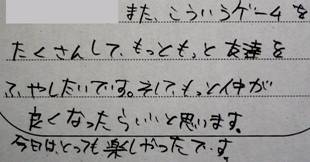 また、こういうゲームを
たくさんして、もっともっと友達を
ふやしたいです。そして、もっと仲が
良くなったらいいと思います。
今日は、とっても楽しかったです